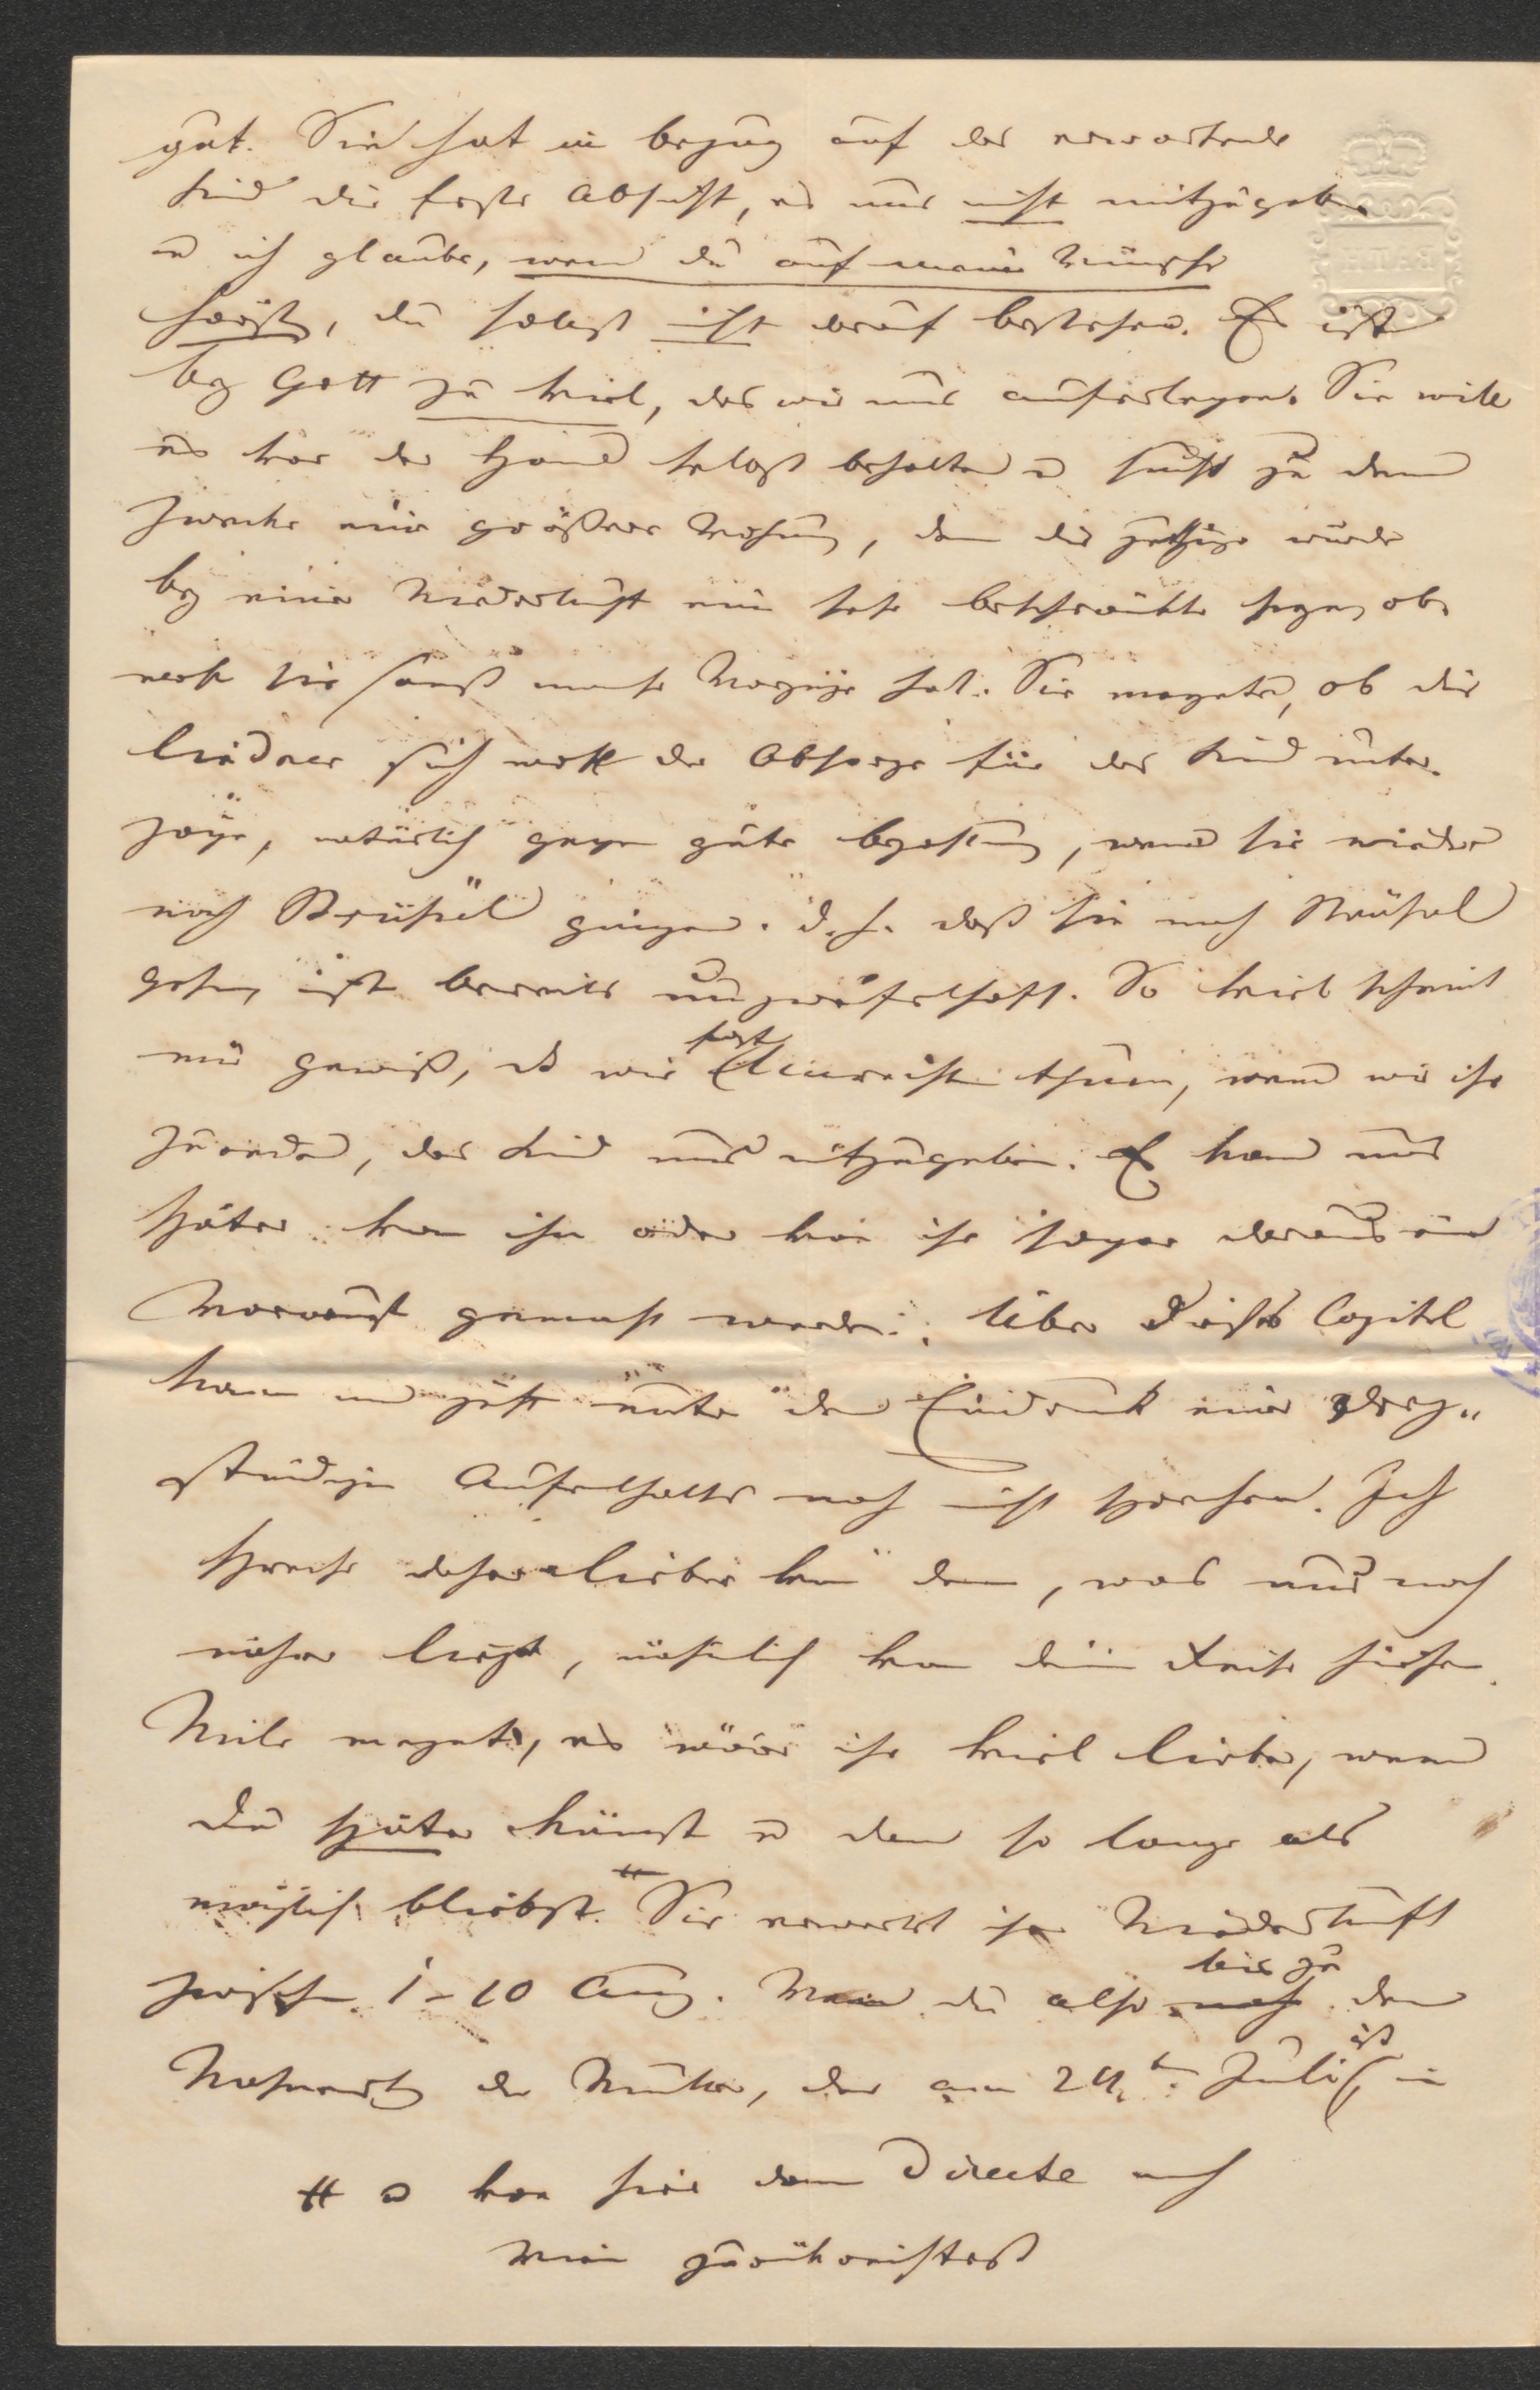 gut. Sie hat in bezug auf das erwartende
Kind die feste Absicht, es uns nicht mitzugeben
u ich glaube, wenn du auf meine Wünsche
hörst, du sollest nicht drauf bestehen. Es ist
bey Gott zu viel, das wir uns auferlegen. Sie will
es vor der Hand selbst behalten u sucht zu dem
Zwecke eine größere Wohnung, den die jetzige würde
bey einer Niederkunft eine sehr beschränkte seyn, ob
wohl sie sonst manche Vorzüge hat. Sie meynte, ob die
Lindner sich wohl der Obsorge für das Kind unter
zöge, natürlich gegen gute bezahlung, wenn sie wieder
nach Brüssel gingen. d. h. daß sie nach Brüssel
gehen ist bereits unzweifelhaft. So viel scheint
mir gewiß, dß wir fast Unrecht thun, wenn wir ihr
zureden, das Kind uns mitzugeben. Es kann uns
später von ihm oder von ihr sogar daraus ein
Vorwurf gemacht werden. Über dieses Capitel
kann man jetzt unter dem Eindruck eines drey
stündigen Aufenthalts noch nicht sprechen. Ich
spreche daher lieber von dem, was uns noch
näher liegt, nähmlich von deine Reise hieher.
Nile meynte, es wäre ihr viel lieber, wenn
du später kämest u dann so lange als
möglich bliebst. # Sie erwartet ihre Niederkunft
zwischen 1-10 Aug. Wenn du also bis zu dem
Nahmenstag der Mutter, der am 24. Juli ist, in
# u von hier dann Directe nach
Wien zurückreistest
BATH